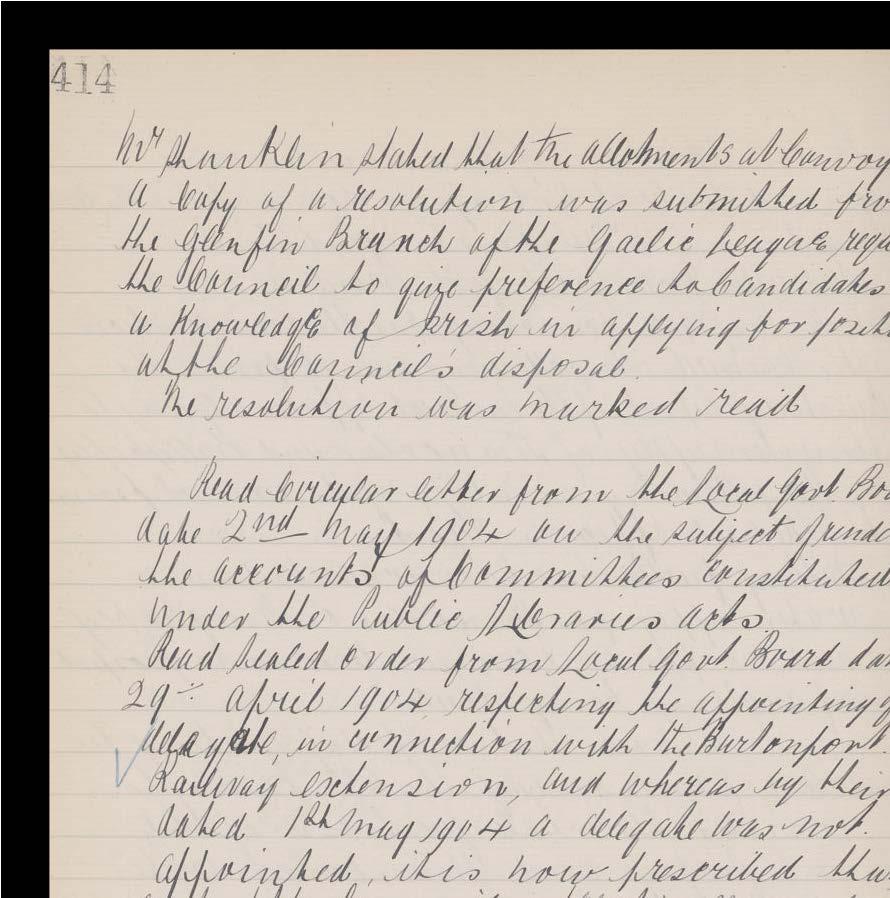 414
Mr Shanklin stated that the allotments at Convoy
a Copy of a resolution was submitted fro
the Glenfin Branch of the Gaelic League requ
the Council to give preference to Candidates
a Knowledge of Irish in applying for posit
at the Council's disposal.
The resolution was marked read
Read Circular letter from the Local Govt. Boa
date 2nd May 1904 on the subject of
the accounts of Committees constituted
under the Public Libraries acts
Read Sealed order from Local Govt. Board dat
29th april 1904 respecting the appointing of
delegate, in connection with the Burtonport
Railway extension, and whereas by their
dated 1st May 1904 a delegate was not
appointed, it is now prescribed tha